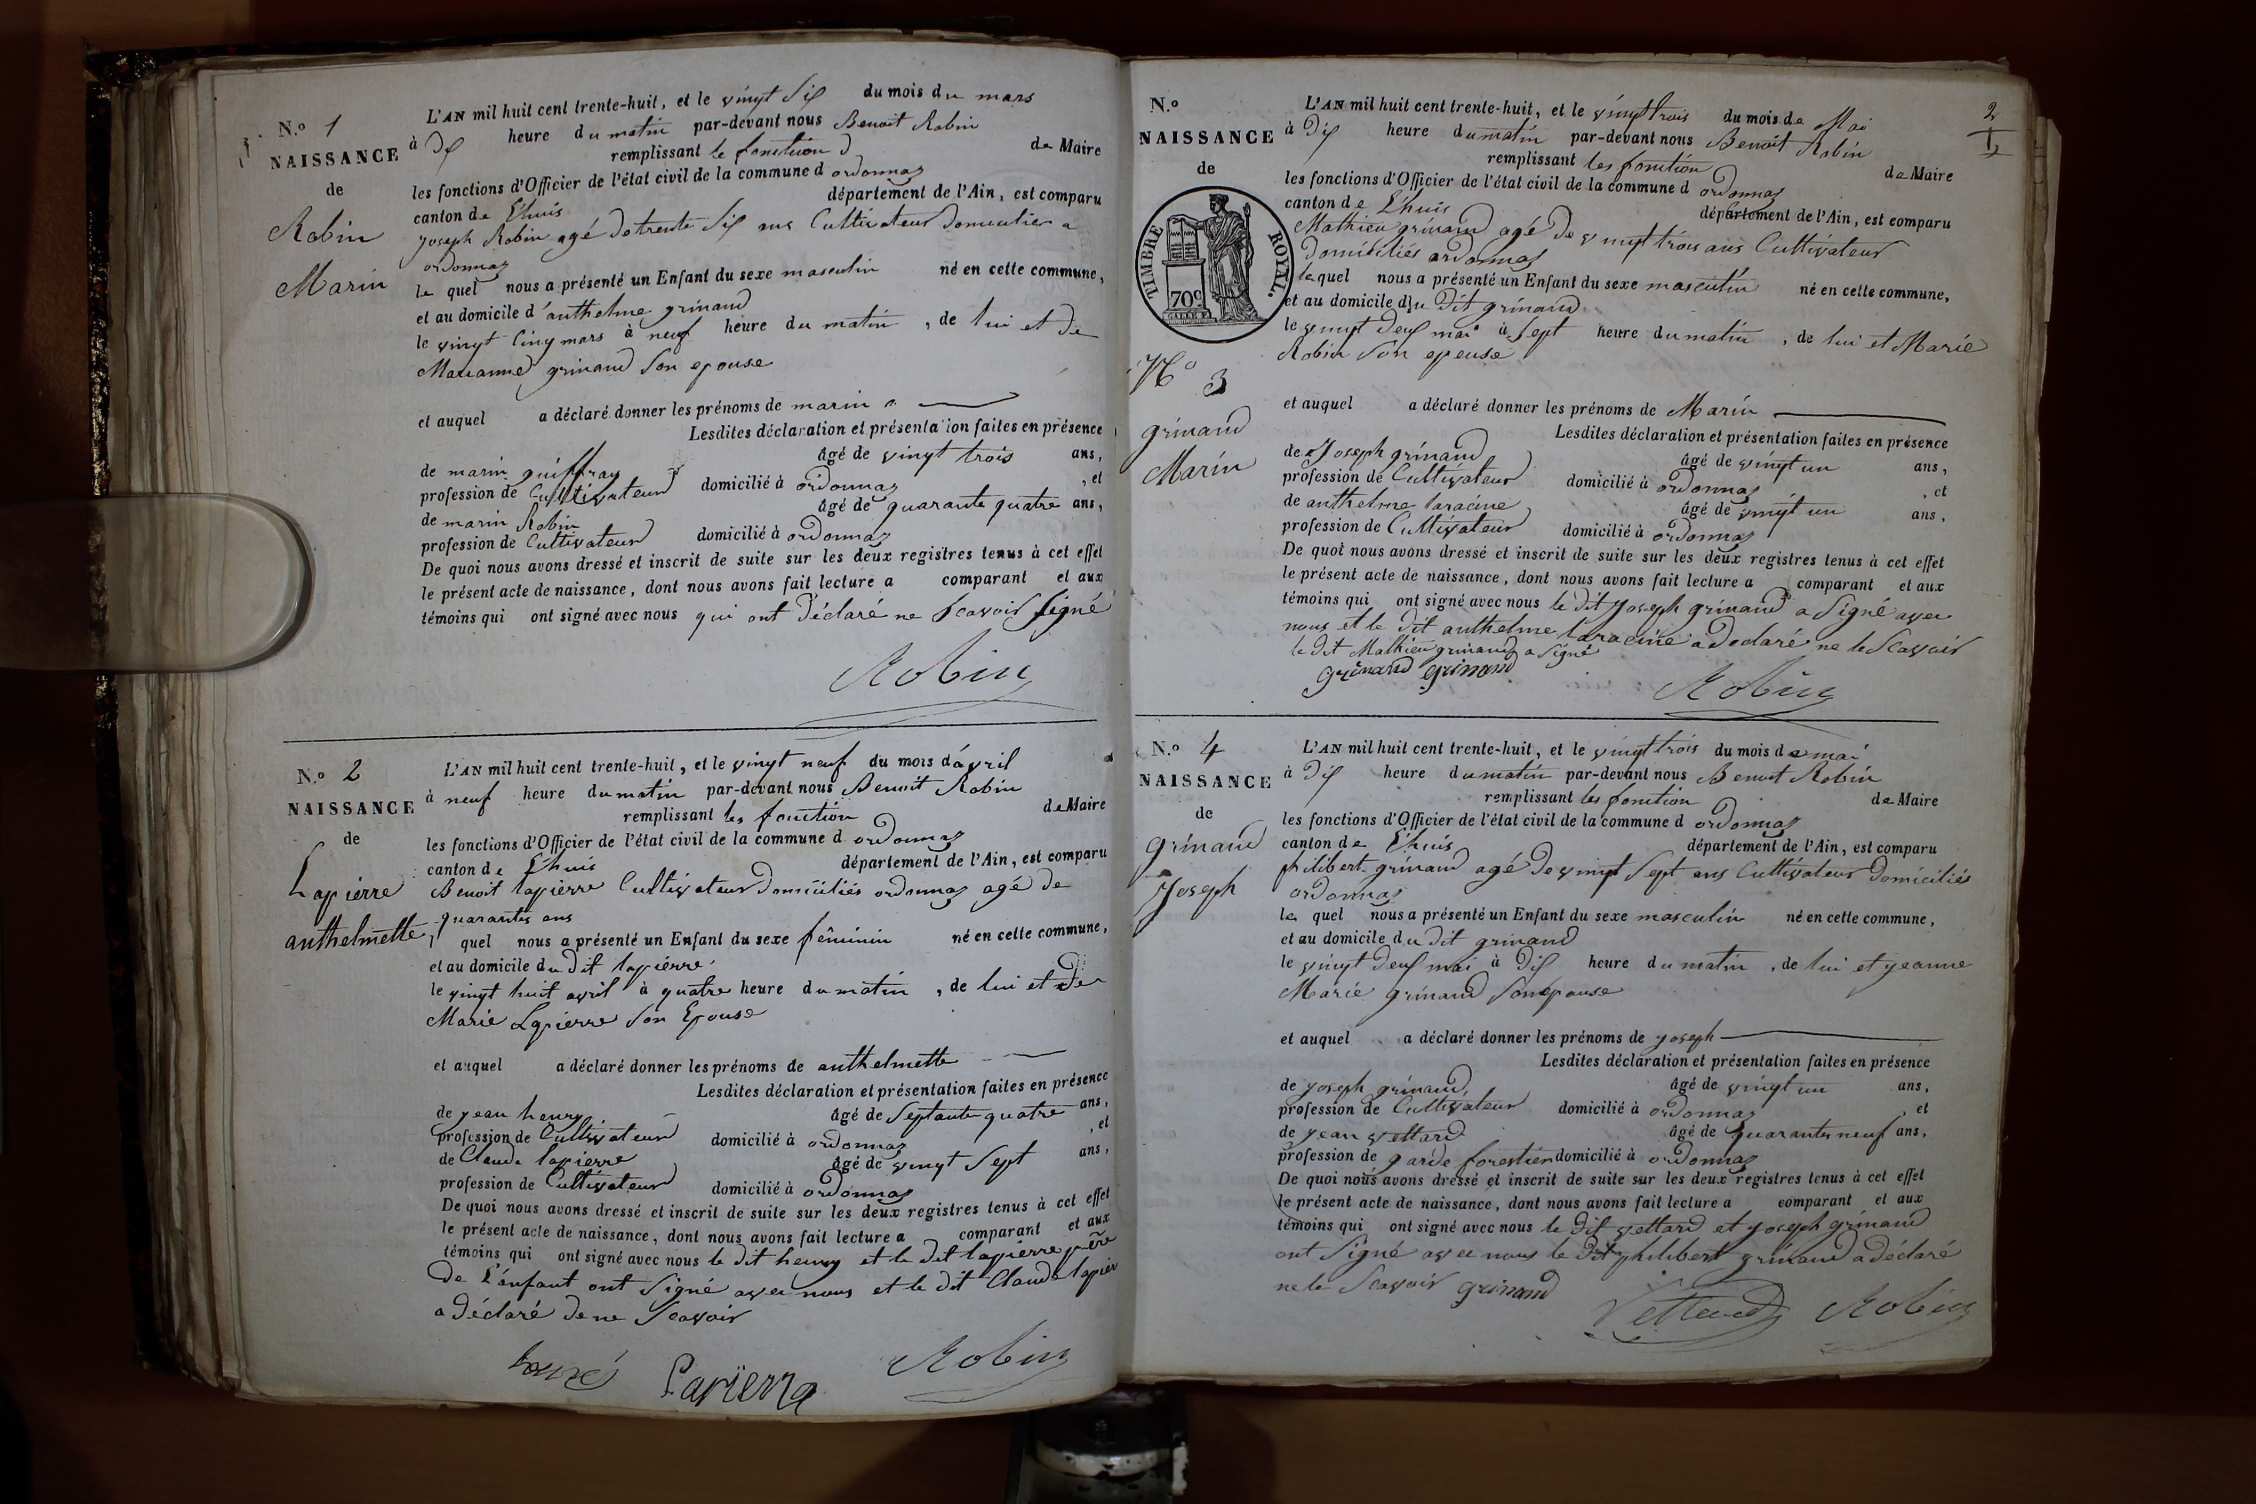 N.º 1
NAISSANCE
de
Robin
Marin
L'AN mil huit cent trente-huit, et le vingt Six du mois du mars
à Dix heure du matin par-devant nous Benoit Robin
remplissant le fonction d de Maire
les fonctions d'Officier de l'état civil de la commune d ordonnaz
canton de L'huis département de l'Ain, est comparu
joseph Robin agé de trente Six ans Cultivateur Domicilier a
ordonnaz
le quel nous a présenté un Enfant du sexe masculin né en cette commune,
et au domicile d'anthelme grinand
le vingt Cinq mars à neuf heure du matin, de lui et de
Marianne grinand Son epouse
et auquel a déclaré donner les prénoms de marin
Lesdites déclaration et présentation faites en présence
de marin guiffray âgé de vingt trois ans,
profession de Cultivateur domicilié à ordonnaz, et
de marin Robin âgé de quarante quatre ans,
profession de Cultivateur domicilié à ordonnaz
De quoi nous avons dressé et inscrit de suite sur les deux registres tenus à cet effet
le présent acte de naissance, dont nous avons fait lecture a comparant et aux
témoins qui ont signé avec nous qui ont Déclaré ne Scavoir Signé
Robin
N.º 2
NAISSANCE
de
Lapierre
anthelmette
L'AN mil huit cent trente-huit, et le vingt neuf du mois d'avril
à neuf heure du matin par-devant nous Benoit Robin
remplissant les fonction de Maire
les fonctions d'Officier de l'état civil de la commune d ordonnaz
canton de L'huis département de l'Ain, est comparu
Benoit lapierre Cultivateur Domiciliés ordonnaz agé de
quarantes ans
l quel nous a présenté un Enfant du sexe féminin né en cette commune,
et au domicile du Dit lapierre
le vingt huit avril à quatre heure du matin, de lui et De
Marie Lapierre Son Epouse
et auquel a déclaré donner les prénoms de anthelmette
Lesdites déclaration et présentation faites en présence
de jean henry âgé de Septante quatre ans,
profession de Cultivateur domicilié à ordonnaz, et
de Claude lapierre âgé de vingt Sept ans,
profession de Cultivateur domicilié à ordonnaz
De quoi nous avons dressé et inscrit de suite sur les deux registres tenus à cet effet
le présent acte de naissance, dont nous avons fait lecture a comparant et aux
témoins qui ont signé avec nous le dit henry et le dit lapierre père
De L'enfant ont Signé avec nous et le dit Claude lapier
a Déclaré De ne Scavoir
Lapierre Robin
2
N.º
NAISSANCE
de
TIMBRE ROYAL.
70c
Nº 3
grinand
Marin
L'AN mil huit cent trente-huit, et le vingt trois du mois de Mai
à Dix heure du matin par-devant nous Benoit Robin
remplissant les fonction de Maire
les fonctions d'Officier de l'état civil de la commune d ordonnaz
canton de L'huis département de l'Ain, est comparu
Mathieu grinand agé De vingt trois ans Cultivateur
Domiciliés ordonnaz
le quel nous a présenté un Enfant du sexe masculin né en cette commune,
et au domicile du Dit grinand
le vingt Deux mai à Sept heure du matin, de lui et Marie
Robin Son epeuse
et auquel a déclaré donner les prénoms de Marin
Lesdites déclaration et présentation faites en présence
de Joseph grinand âgé de vingt un ans,
profession de Cultivateur domicilié à ordonnaz, et
de anthelme laracine âgé de vingt un ans,
profession de Cultivateur domicilié à ordonnaz
De quoi nous avons dressé et inscrit de suite sur les deux registres tenus à cet effet
le présent acte de naissance, dont nous avons fait lecture a comparant et aux
témoins qui ont signé avec nous le dit Joseph grinand a Signé avec
nous et le Dit anthelme laracine a Declaré ne le Scavoir
le Dit Mathieu grinand a Signé
grinand grinand
Robin
N.º 4
NAISSANCE
de
grinand
Joseph
L'AN mil huit cent trente-huit, et le vingt trois du mois de mai
à Dix heure du matin par-devant nous Benoit Robin
remplissant les fonction de Maire
les fonctions d'Officier de l'état civil de la commune d ordonnaz
canton de L'huis département de l'Ain, est comparu
philibert grinand agé De vingt Sept ans Cultivateur Domiciliés
ordonnaz
le quel nous a présenté un Enfant du sexe masculin né en cette commune,
et au domicile du Dit grinand
le vingt Deux mai à Dix heure du matin, de lui et jeanne
Marie grinand Son epouse
et auquel a déclaré donner les prénoms de joseph
Lesdites déclaration et présentation faites en présence
de joseph grinand âgé de vingt un ans,
profession de Cultivateur domicilié à ordonnaz, et
de jean vettard âgé de quarantes neuf ans,
profession de garde forestier domicilié à ordonnaz
De quoi nous avons dressé et inscrit de suite sur les deux registres tenus à cet effet
le présent acte de naissance, dont nous avons fait lecture a comparant et aux
témoins qui ont signé avec nous le Dit vettard et joseph grinand
ont Signé avec nous le Dit philibert grinand a déclaré
ne le Scavoir grinand
Vettard Robin